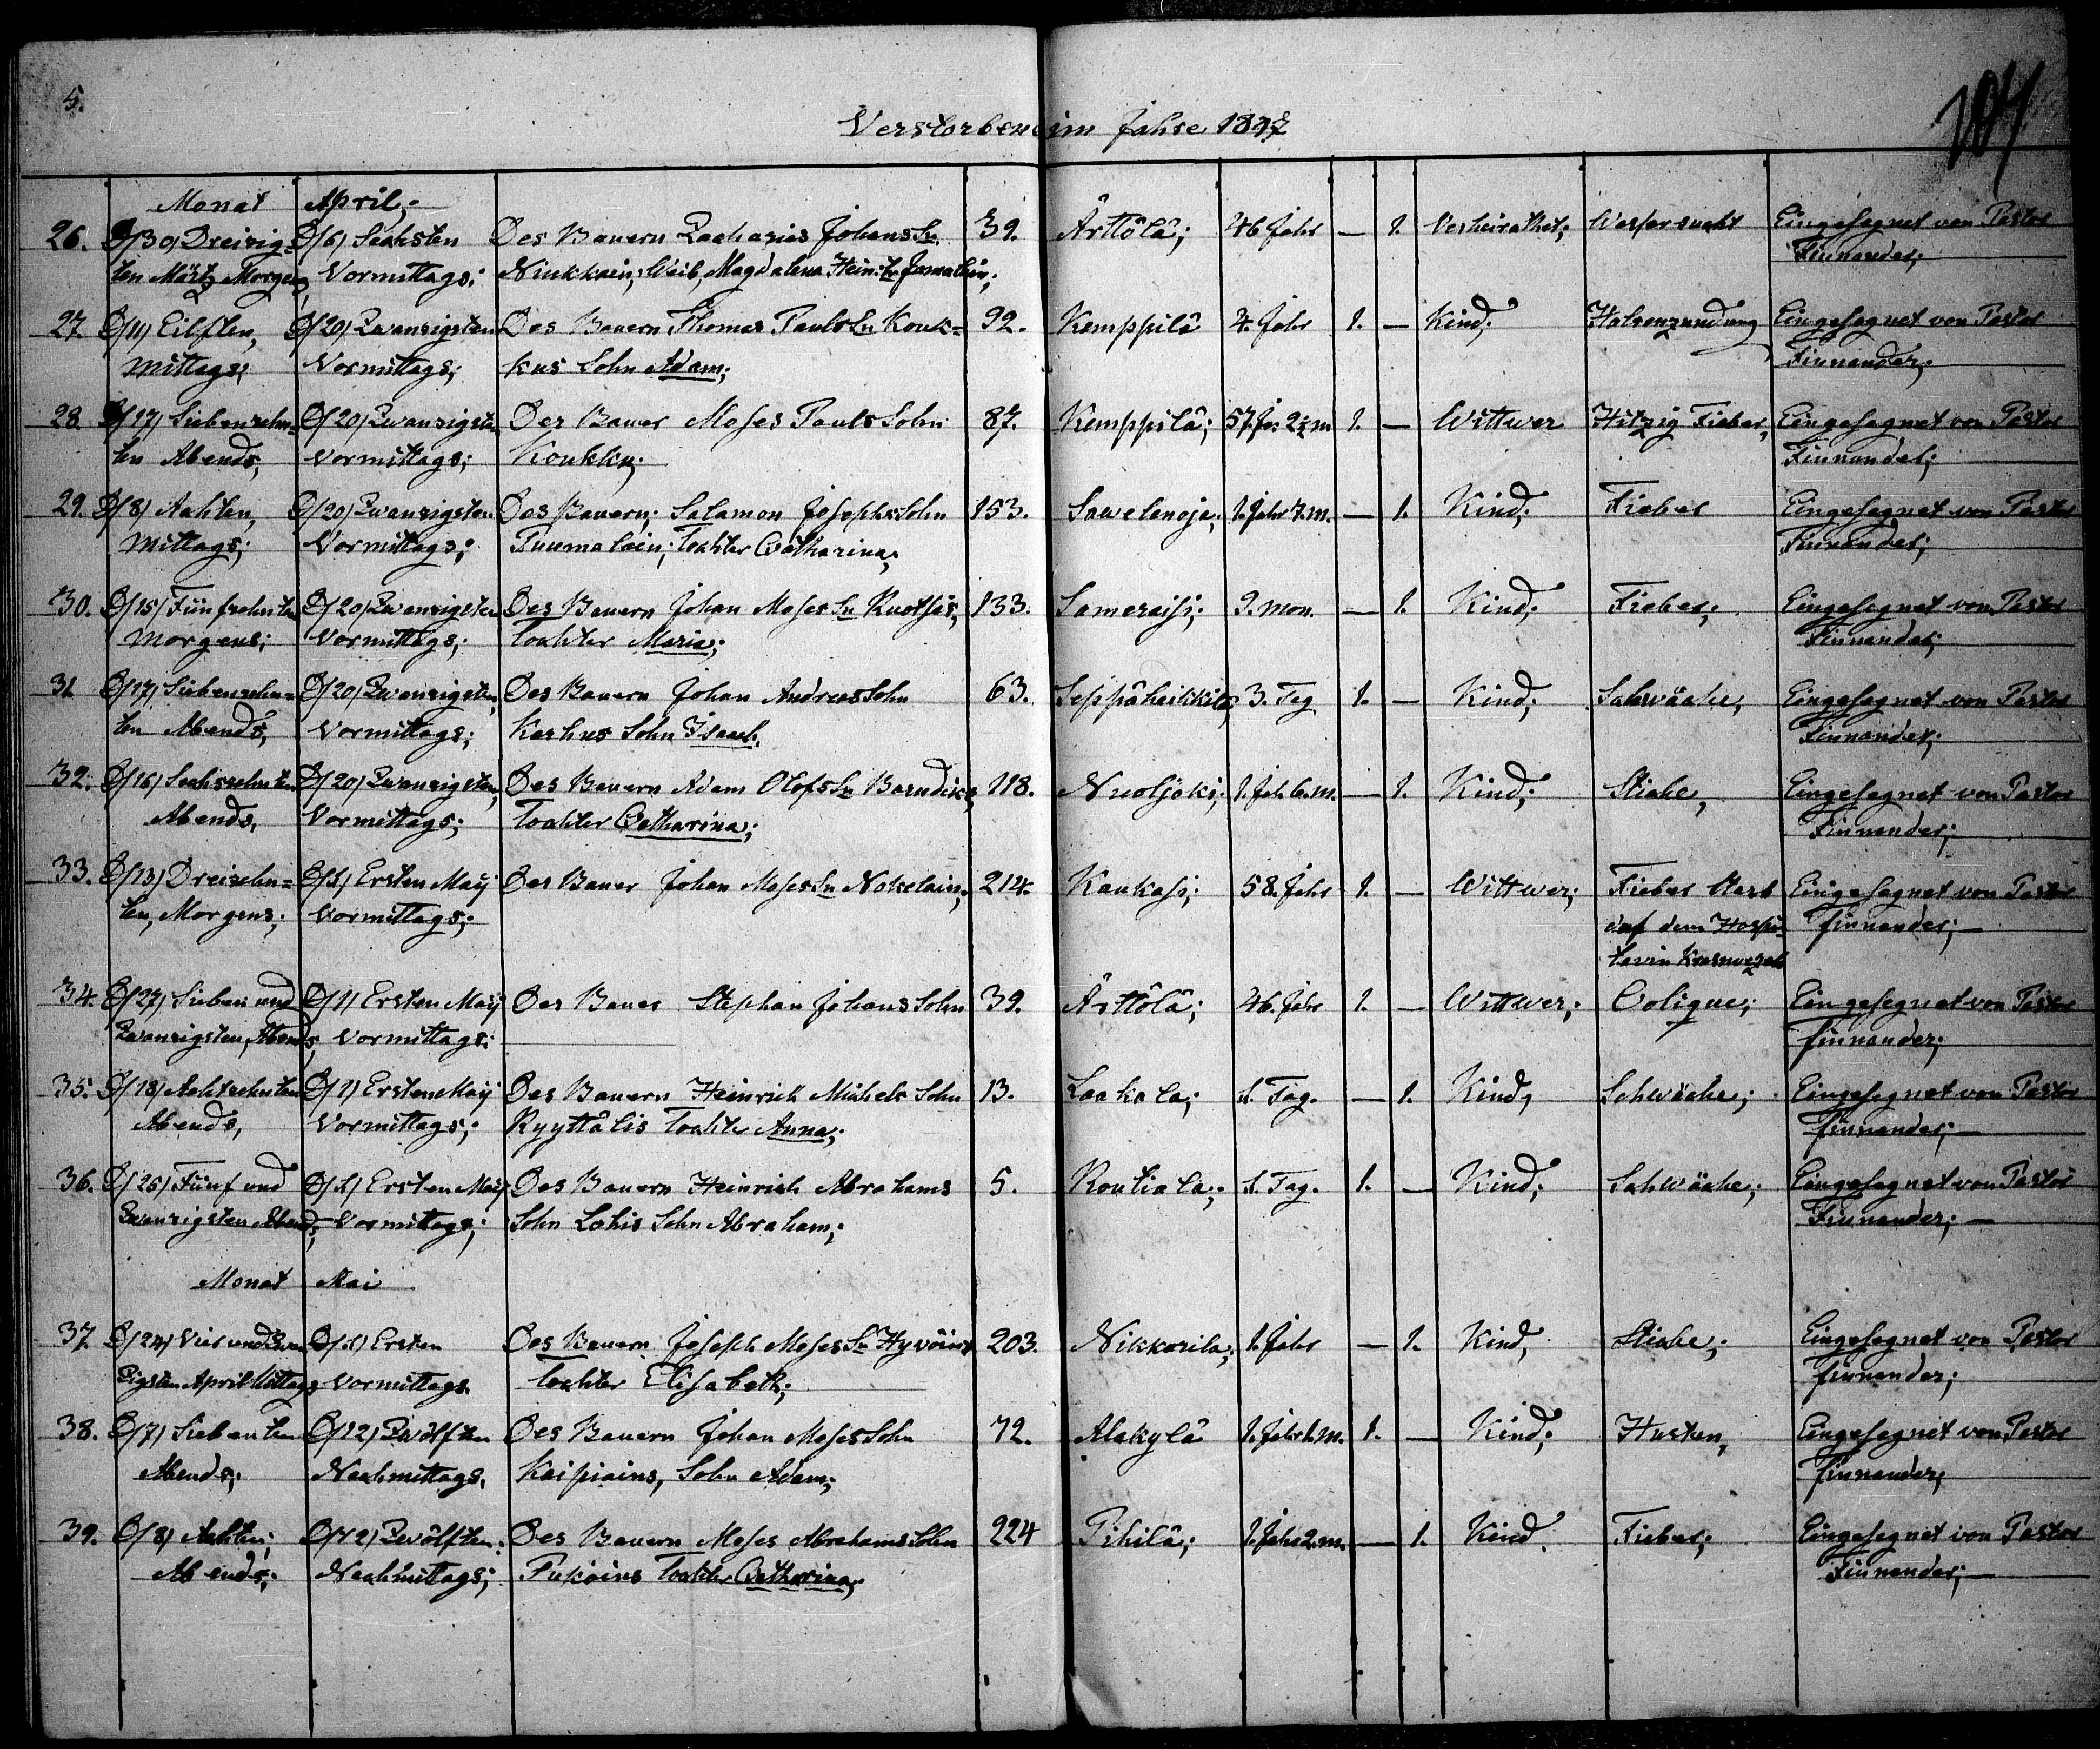 5.
Verstorben im Jahre 1837
Monat April,-
26. D/30, Dreizig- D/6/ Sechsten Des Bauern Zacharias Johans Sn 39. Ärttölä; 46 Jahr — 1. Verheirathet; Wassersucht Eingesegnet von Pastor
ten Märtz Morgens, Vormittags; Niukkain; Weib, Magdalena Hein: Finnander;
27. D/11/ Eilften, D/20/ Zwanzigsten Des Bauern Thomas Pauls Sn Kouk- 92. Kemppilä 4. Jahr 1. — Kind; Halsenzundung Eingesegnet von Pastor
Mittags; Vormittags; kus Sohn Adam; Finnander;
28. D/17/ Siebenzehn- D/20/ Zwanzigsten Der Bauer Moses Pauls Sohn 87. Kemppilä; 57 Ja: 2½ m 1. — Wittwer Hitzig Fieber, Eingesegnet von Pastor
ten Abends, Vormittags; Koukku; Finnander;
29. D/8/ Achten, D/20/ Zwanzigsten Des Bauern; Salamon Josephs Sohn 153. Sawelenoja; 1. Jahr 7. m. — 1. Kind; Fieber Eingesegnet von Pastor
Mittags; Vormittags; Tuumalain; Tochter Catharina; Finnander;
30. D/15/ Fünfzehnten D/20/ Zwanzigsten Des Bauern Johan Moses Sn Ruotsis, 133. Sameroisi; 9. Mon. — 1. Kind; Fieber; Eingesegnet von Pastor
Morgens; Vormittags; Tochter Maria; Finnander;
31. D/17/ Siebenzehn- D/20/ Zwanzigsten, Des Bauern Johan Andreas Sohn 63. Seppäheikkilä 3. Tag 1. — Kind; Schwäche, Eingesegnet von Pastor
ten Abends, Vormittags; Karhus Sohn Isaac. Finnander;
32. D/16/ Sechszehnten D/20/ Zwanzigsten, Des Bauern Adam Olofs Sn 118. Nuoljoki; 1. Jah. 6. m. — 1. Kind; Stiche, Eingesegnet von Pastor
Abends, Vormittags; Tochter Catharina; Finnander;
33. D/13/ Dreizehn- D/1/ Ersten Maij Der Bauer Johan Moses Sn Nokelain; 214. Kaukasi; 58. Jahr 1. — Wittwer; Fieber Starb Eingesegnet von Pastor
ten, Morgens; Vormittags; auf dem Hospi- Finnander; —
34. D/27/ Sieben und D/1/ Ersten Maij Der Bauer Stephan Johans Sohn 39. Ärttölä; 46. Jahr 1. — Wittwer; Colique; Eingesegnet von Pastor
Zwanzigsten, Abends, Vormittags; Finnander;
35. D/18/ Achtzehnten D/1/ Ersten Maij Des Bauern Heinrich Michels Sohn 13. Laakala; 1. Tag. — 1. Kind, Schwäche; Eingesegnet von Pastor
Abends, Vormittags; Ryyttälis Tochter Anna; Finnander; —
36. D/25/ Fünf und D/1/ Ersten Maij Des Bauern Heinrich Abrahams 5. Routiala; 1. Tag. 1. — Kind; Schwäche; Eingesegnet von Pastor
Zwanzigsten Abends; Vormittags; Sohn Lohis Sohn Abraham; Finnander; —
Monat Mai
37 D/24/ Vier und Zwan D/1/ Ersten Des Bauern Joseph Moses Sn Hyvöins 203. Nikkarila; 1. Jahr — 1. Kind, Stiche; Eingesegnet von Pastor
zigsten April Mittags Vormittags. Tochter Elisabeth; Finnander;
38. D/7/ Siebenten D/12/ Zwölften Des Bauern Johan Moses Sohn 72. Alakylä 1. Jahr 1. m. 1. — Kind; Husten, Eingesegnet von Pastor
Abends; Nachmittags. Kaipiains, Sohn Adam; Finnander,
39. D/8/ Achten; D/12/ Zwölften; Des Bauern Moses Abrahams Sohn 224 Pihilä; 1. Jahr 2. m. — 1. Kind. Fieber; Eingesegnet von Pastor
Abends; Nachmittags; Pukoins Tochter Catharina; Finnander; —